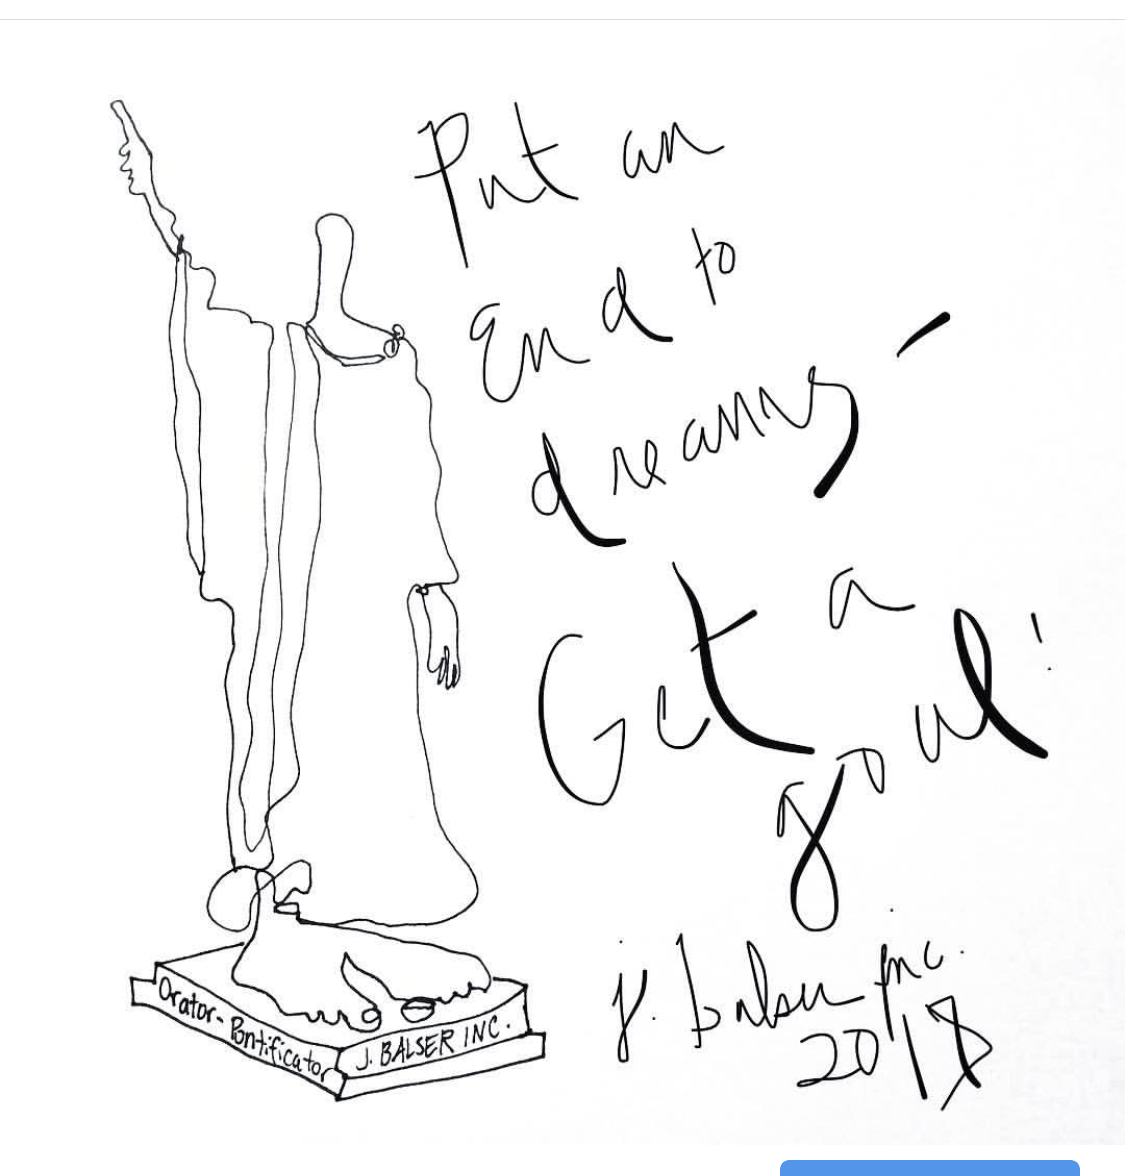 Put an
End to
dreams -
Get a
goal!
j. balser inc.
2018
Orator-Pontificator
J. BALSER INC.